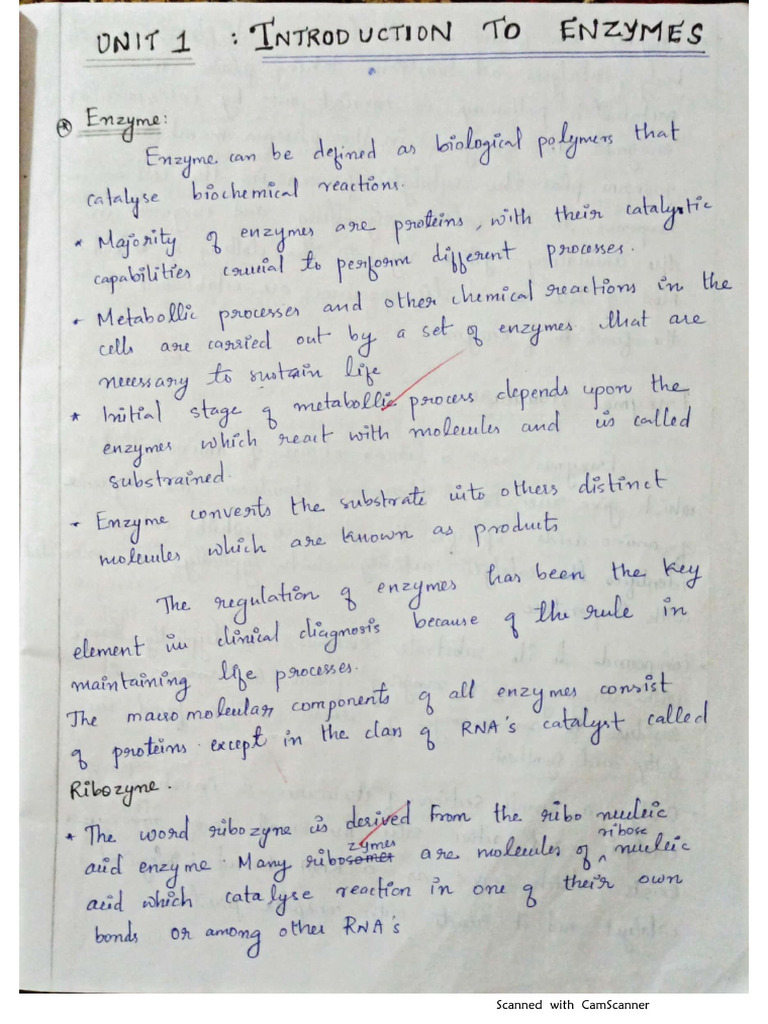 UNIT 1 : INTRODUCTION TO ENZYMES
Enzyme:
Enzyme can be defined as biological polymers that
catalyse biochemical reactions.
* Majority of enzymes are proteins, with their catalystic
capabilities crucial to perform different processes.
* Metabollic processes and other chemical reactions in the
cells are carried out by a set of enzymes that are
necessary to sustain life
* Initial stage of metabollic process depends upon the
enzymes which react with molecules and is called
substrained.
* Enzyme converts the substrate into others distinct
molecules which are known as products
The regulation of enzymes has been the key
element in clinical diagnosis because of the rule in
maintaining life processes.
The macromolecular components of all enzymes consist
of proteins except in the class of RNA's catalyst called
Ribozyme.
* The word ribozyne is derived from the ribo nucleic
zymes ribose
acid enzyme. Many ribosomes are molecules of nucleic
acid which catalyse reaction in one of their own
bonds or among other RNA's
Scanned with CamScanner